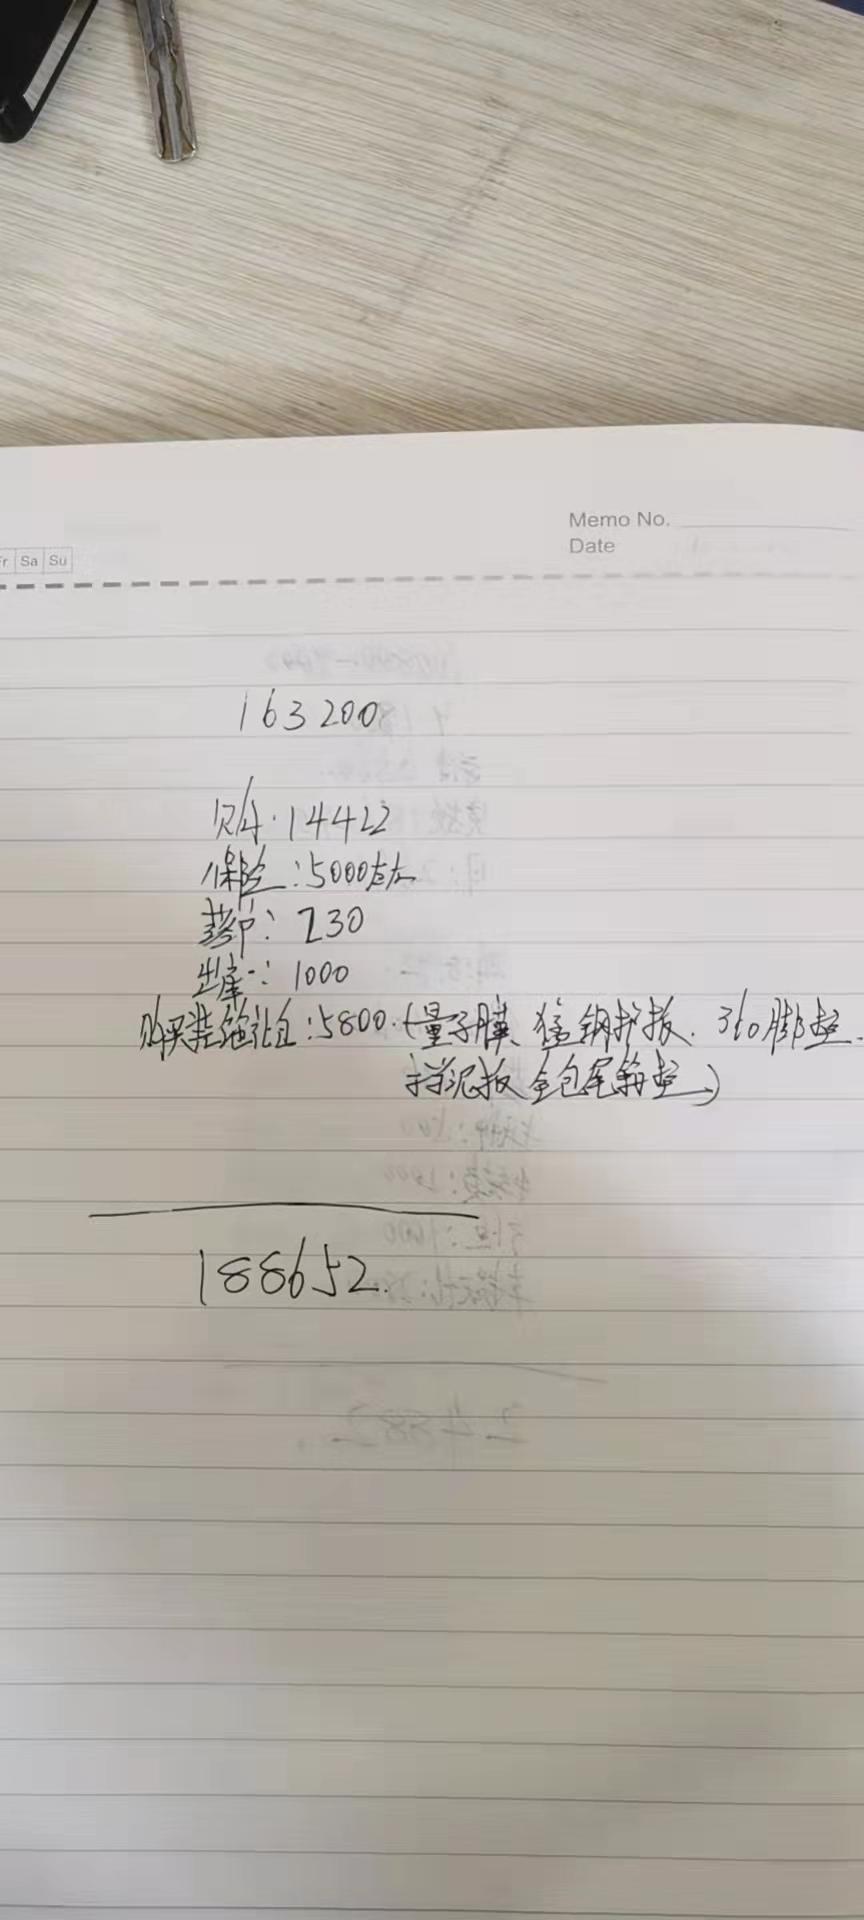 Memo No.
Date
Sa Su
163200
购:14422
保险:5000左右
230
出库:1000
购买装饰礼包:5800.(量子膜、猛钢护板.360脚垫.
挡泥板 全包尾箱垫)
188652.